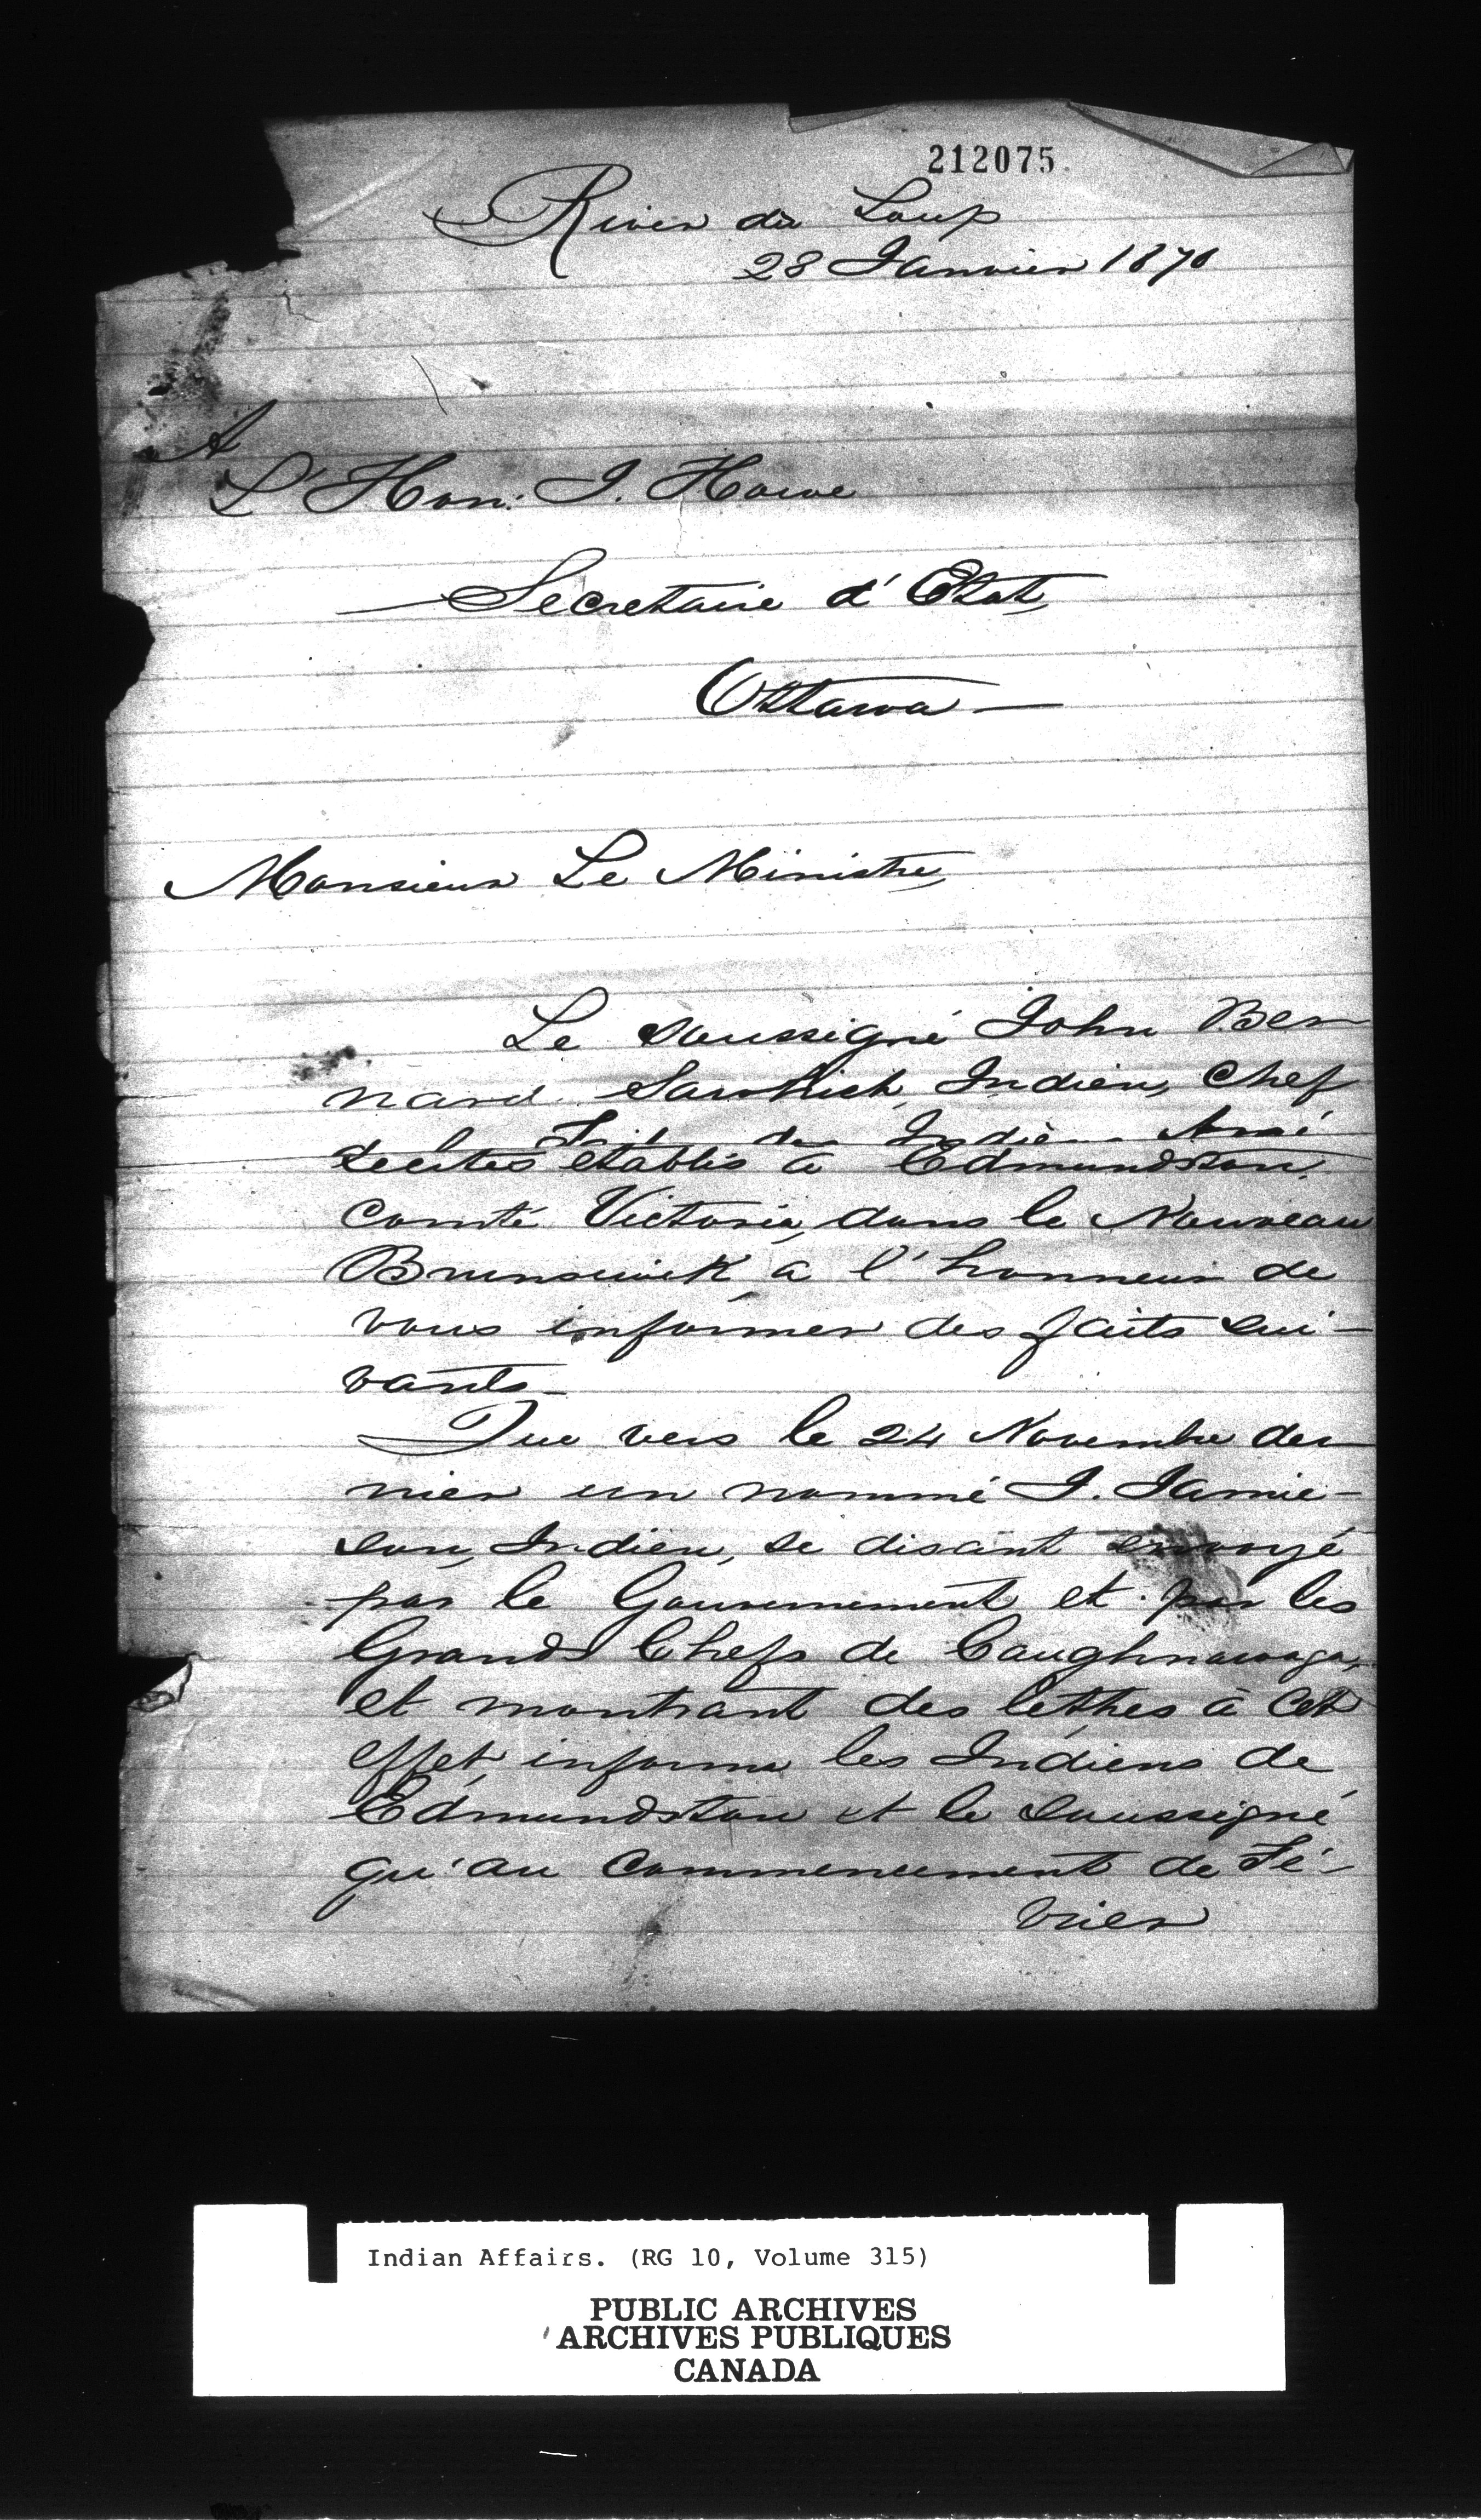 212075
River du Loup
28 Janvier 1870
A
L'Hon: J. Howe
Secretaire d'Etat,
Ottawa —
Monsieur Le Ministre,
Le soussigné John Ber
nard Indien, Chef
Indiens Amé
lecites établis à Edmundston,
Comté Victoria, dans le Nouveau
Brunswick, a l'honneur de
vous informer des faits sui-
vants—
Que vers le 24 Novembre der
nier un nommé J. Jamie-
son, Indien, se disant envoyé
par le Gouvernement et par les
Grands Chefs de Caughnawaga,
et montrant des lettres à cet
effet, informa les Indiens de
Edmundston et le soussigné
qu'au commencement de Fé-
vrier
Indian Affairs. (RG 10, Volume 315)
PUBLIC ARCHIVES
ARCHIVES PUBLIQUES
CANADA